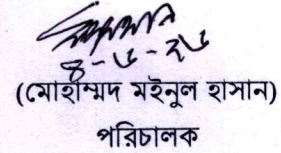 ৪-৬-২৬
(মোহাম্মদ মইনুল হাসান)
পরিচালক